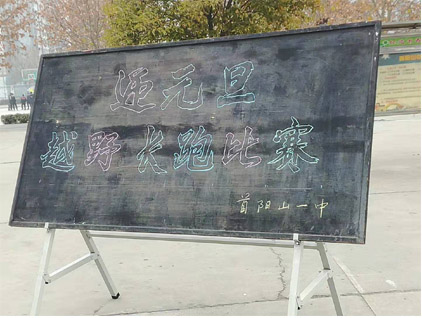 迎元旦
越野长跑比赛
首阳山一中